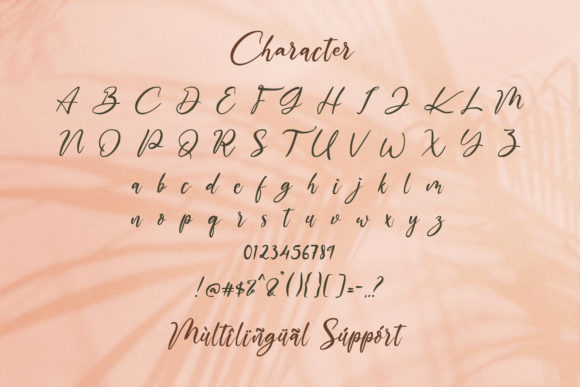 Character
A B C D E F G H I J K L M
N O P Q R S T U V W X Y Z
a b c d e f g h i j k l m
n o p q r s t u v w x y z
0123456789
!@#$%^&*(){}[]=-_,.?
Mùltîlïñgüãl Súppórt